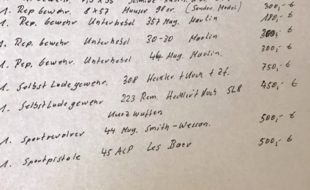 1. Rep. Gewehr. 8x57 Mauser 98er (Sonder Modell) 300,- €
1. Rep. Gewehr Unterhebel 357 Mag. Marlin 180,- €
1. Rep. Gewehr Unterhebel 30-30 Marlin 200,- €
1. Rep. Gewehr Unterhebel 44 Mag. Marlin 200,- €
1. Selbst Ladegewehr 308 Heckler + Koch + Zf. 750,- €
1. Selbst Ladegewehr 223 Rem. Heckler + Koch SL8 450,- €
Kurzwaffen
1. Sportrevolver 44 Mag. Smith-Wesson. 500,- €
1. Sportpistole 45 ACP Les Baer 500,- €